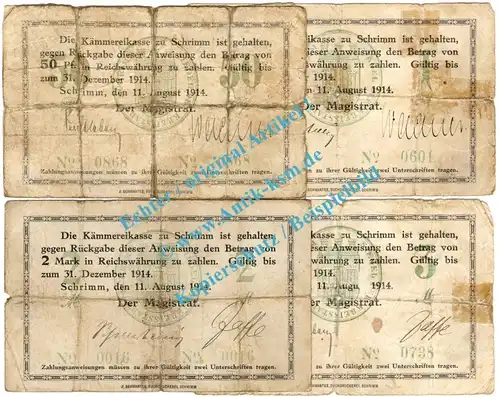 Die Kämmereikasse zu Schrimm ist gehalten,
gegen Rückgabe dieser Anweisung den Betrag von
50 Pf. in Reichswährung zu zahlen. Gültig bis
zum 31. Dezember 1914.
Schrimm, den 11. August 1914.
Der Magistrat.
No 0868
Zahlungsanweisungen müssen zu ihrer Gültigkeit zwei Unterschriften tragen.
kasse zu Schrimm ist gehalten,
dieser Anweisung den Betrag von
Reichswährung zu zahlen. Gültig bis
1914.
11. August 1914.
Der Magistrat.
No 0601
zu ihrer Gültigkeit zwei Unterschriften tragen.
Die Kämmereikasse zu Schrimm ist gehalten,
gegen Rückgabe dieser Anweisung den Betrag von
2 Mark in Reichswährung zu zahlen. Gültig bis
zum 31. Dezember 1914.
Schrimm, den 11. August 1914.
2
M
Der Magistrat.
No 0016 No 0016
Zahlungsanweisungen müssen zu ihrer Gültigkeit zwei Unterschriften tragen.
kasse zu Schrimm ist gehalten,
dieser Anweisung den Betrag von
Reichswährung zu zahlen. Gültig bis
1914.
11. August 1914.
3
M
Der Magistrat.
No 0738
zu ihrer Gültigkeit zwei Unterschriften tragen.
Echte / original Artikel
www.Antik-ksm.de
Kopierschutz / Beispielbild